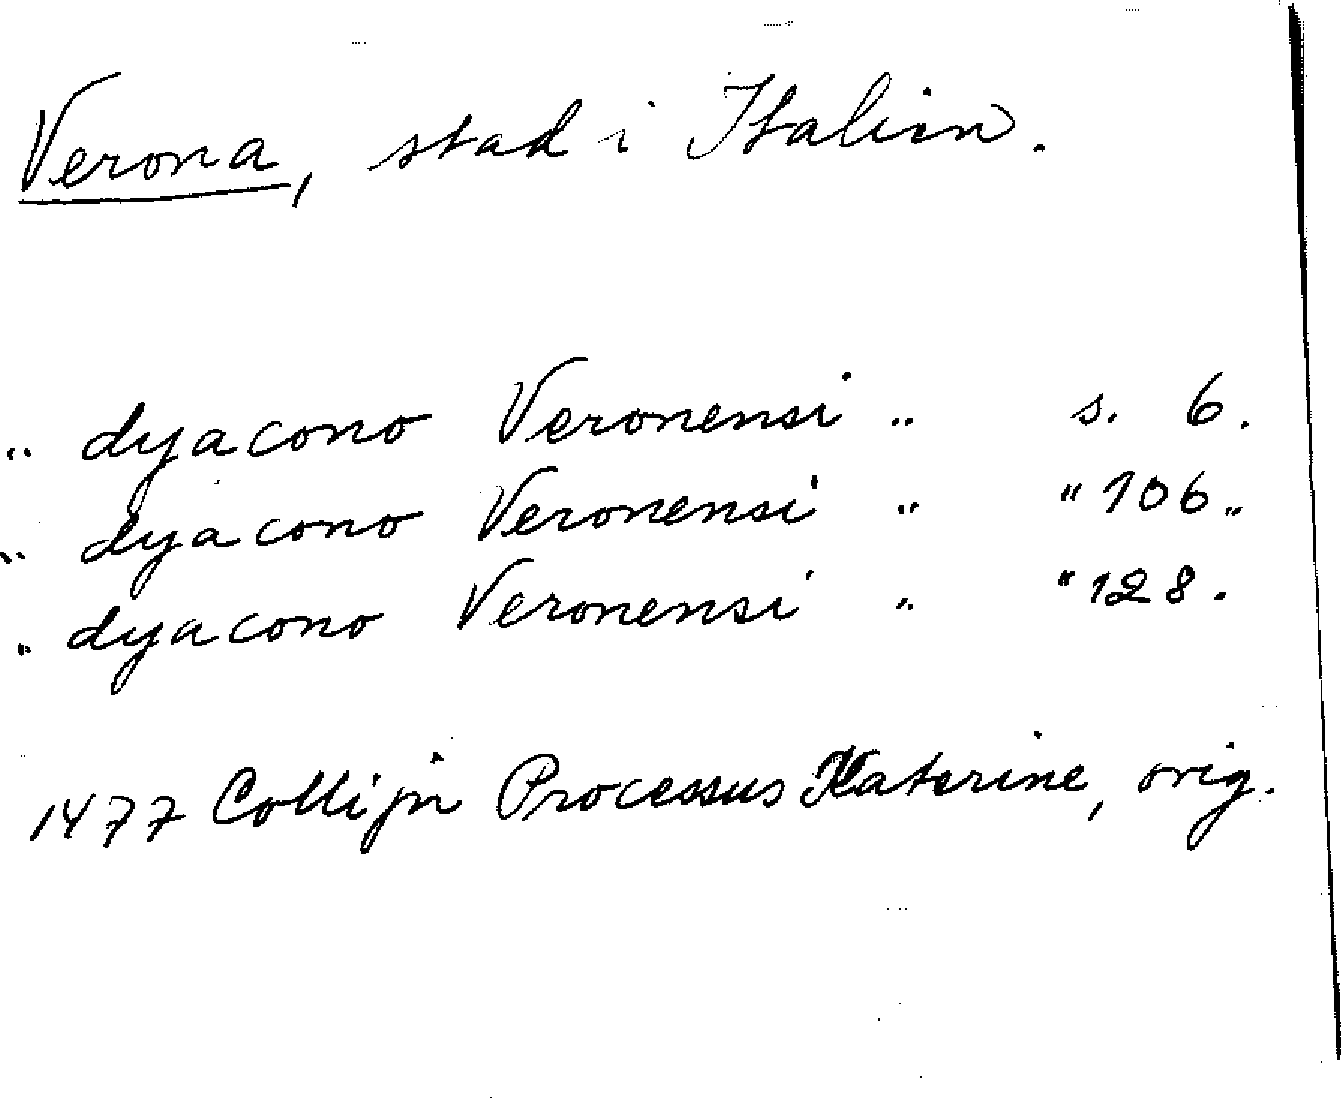 Verona, stad i Italien.
" dyacono Veronensi " s. 6.
" dyacono Veronensi " " 106.
" dyacono Veronensi " " 128.
1477 Collijn Processus Katerine, orig.